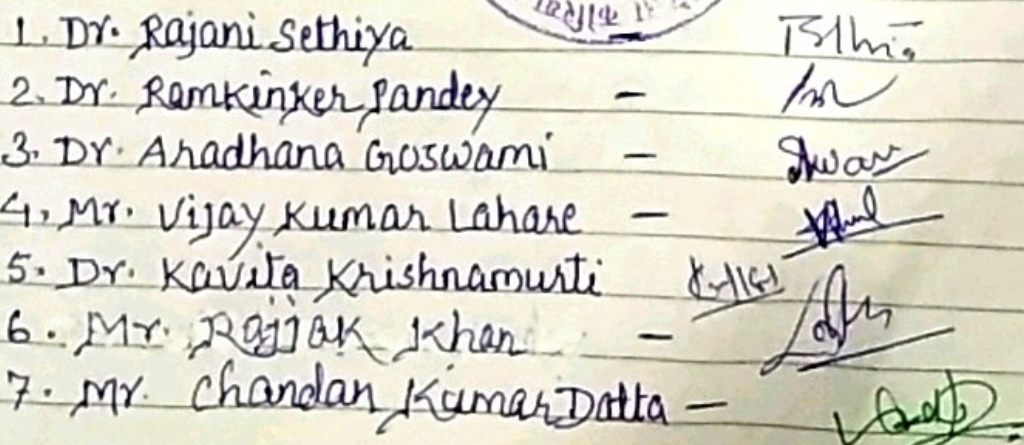 1. Dr. Rajani Sethiya -
2. Dr. Ramkinker Pandey -
3. Dr. Aradhana Goswami -
4. Mr. Vijay Kumar Lahare -
5. Dr. Kavita Krishnamurti
6. Mr. Rajjak Khan -
7. Mr. Chandan Kumar Datta -